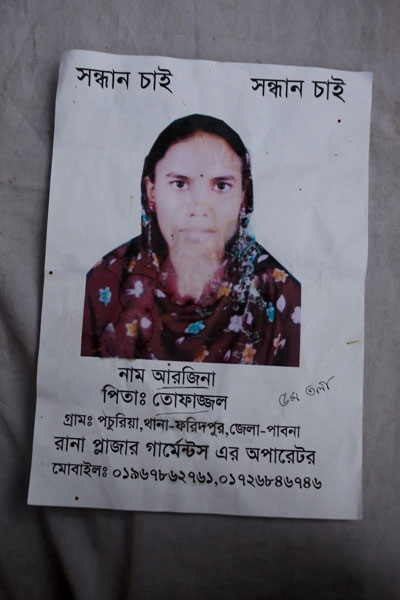 সন্ধান চাই সন্ধান চাই
নাম আরজিনা
পিতাঃ তোফাজ্জল
৫ম তলা
গ্রামঃ পচুরিয়া,থানা-ফরিদপুর,জেলা-পাবনা
রানা প্লাজার গার্মেন্টস এর অপারেটর
মোবাইলঃ ০১৯৬৭৮৬২৭৬১,০১৭২৬৮৪৬৭৪৬